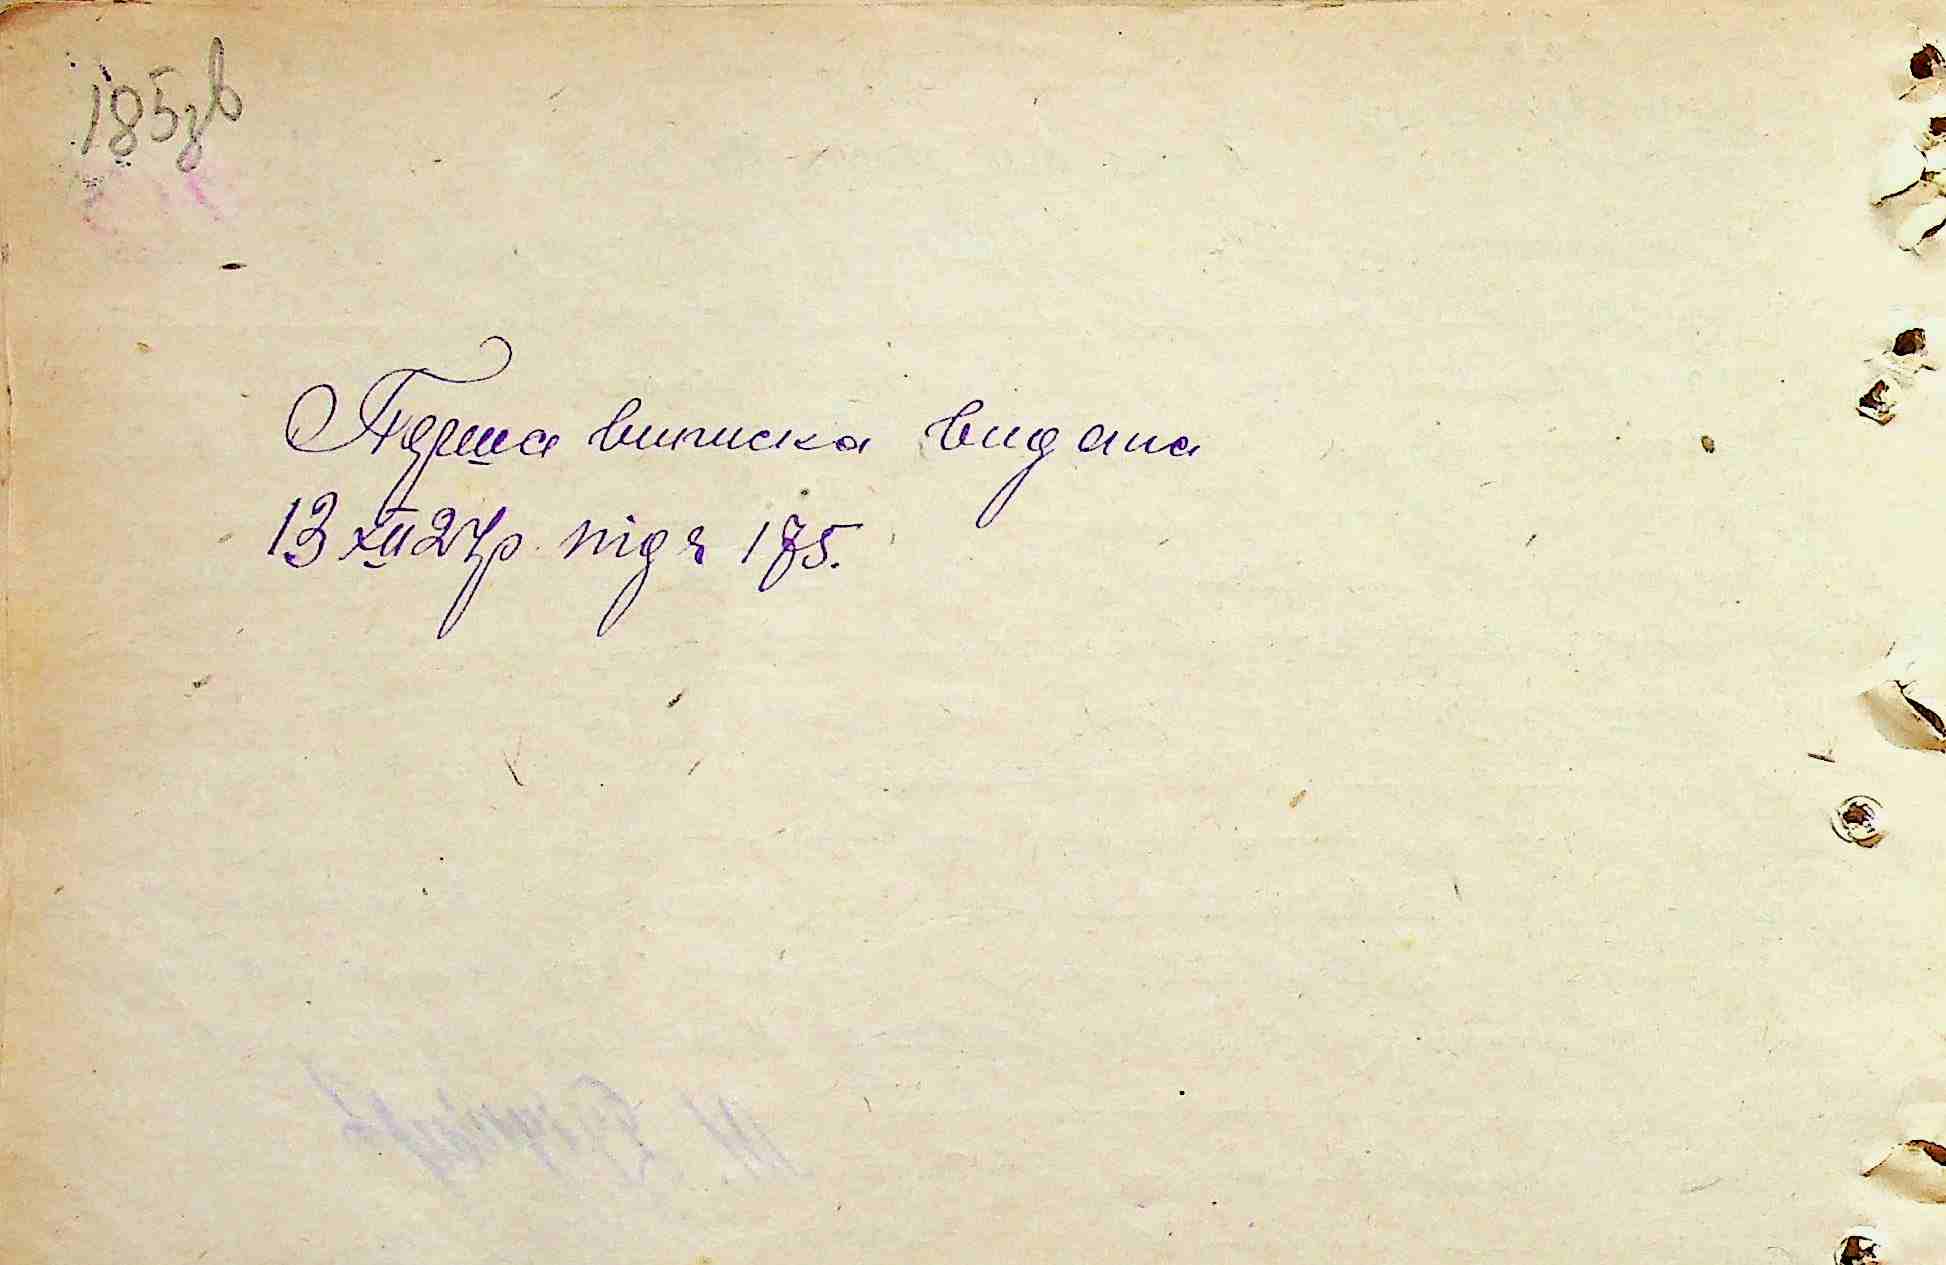 185зв
Перша виписка видана
13 XII 27р. під ч 175.